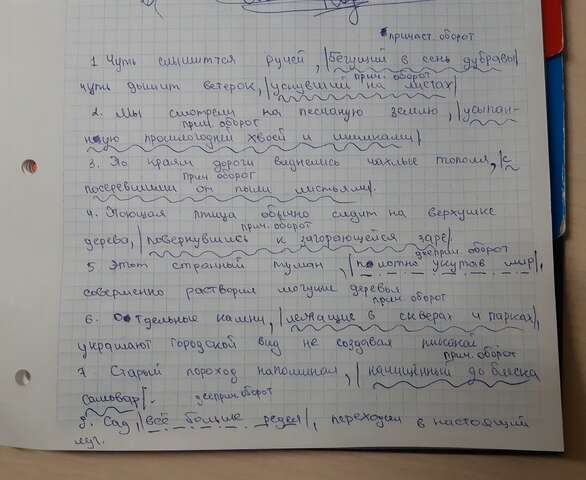 причаст. оборот
1. Чуть слышится ручей, |бегущий в сень дубравы|
прич. оборот
чуть дышит ветерок, |уснувший на листах|
2. Мы смотрели на песчаную землю, |усыпан-
прич. оборот
ную прошлогодней хвоей и шишками|
3. По краям дороги виднелись чахлые тополя, |с
прич оборот
посеревшими от пыли листьями|.
4. Поющая птица обычно сидит на верхушке
прич. оборот
дерева, |повернувшись к загорающейся заре|
дееприч. оборот
5 Этот странный туман, |плотно укутав мир|,
совершенно растворил могучие деревья
прич. оборот
6. Отдельные камни, |лежащие в скверах и парках|,
украшают городской вид не создавая никакой
прич. оборот
7 Старый пароход напоминал, |начищенный до блеска
самовар|.
дееприч. оборот
8. Сад, |всё больше редея|, переходил в настоящий
луг.